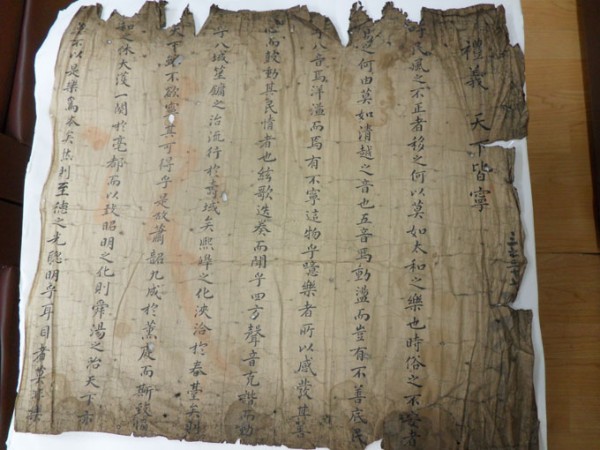 禮義 天下皆寧
民風之不正者移之何以莫如太和之樂也時俗之不安者
易之何由莫如清越之音也五音焉動盪而豈有不善底民
八音焉洋溢而焉有不寧這物乎噫樂者所以感發其善
心而鼓動其民情者也絃歌迭奏而聞乎四方聲音克諧而動
八域笙鏞之治流行於壽域矣熙皥之化浹洽於春臺矣則
天下雖不欲寧其可得乎是故蕭韶九成於薰庭而斯
休大濩一闋於亳都而以致昭明之化則舜湯之治天下亦
不以是樂爲本矣然則至德之光聰明乎耳目者莫